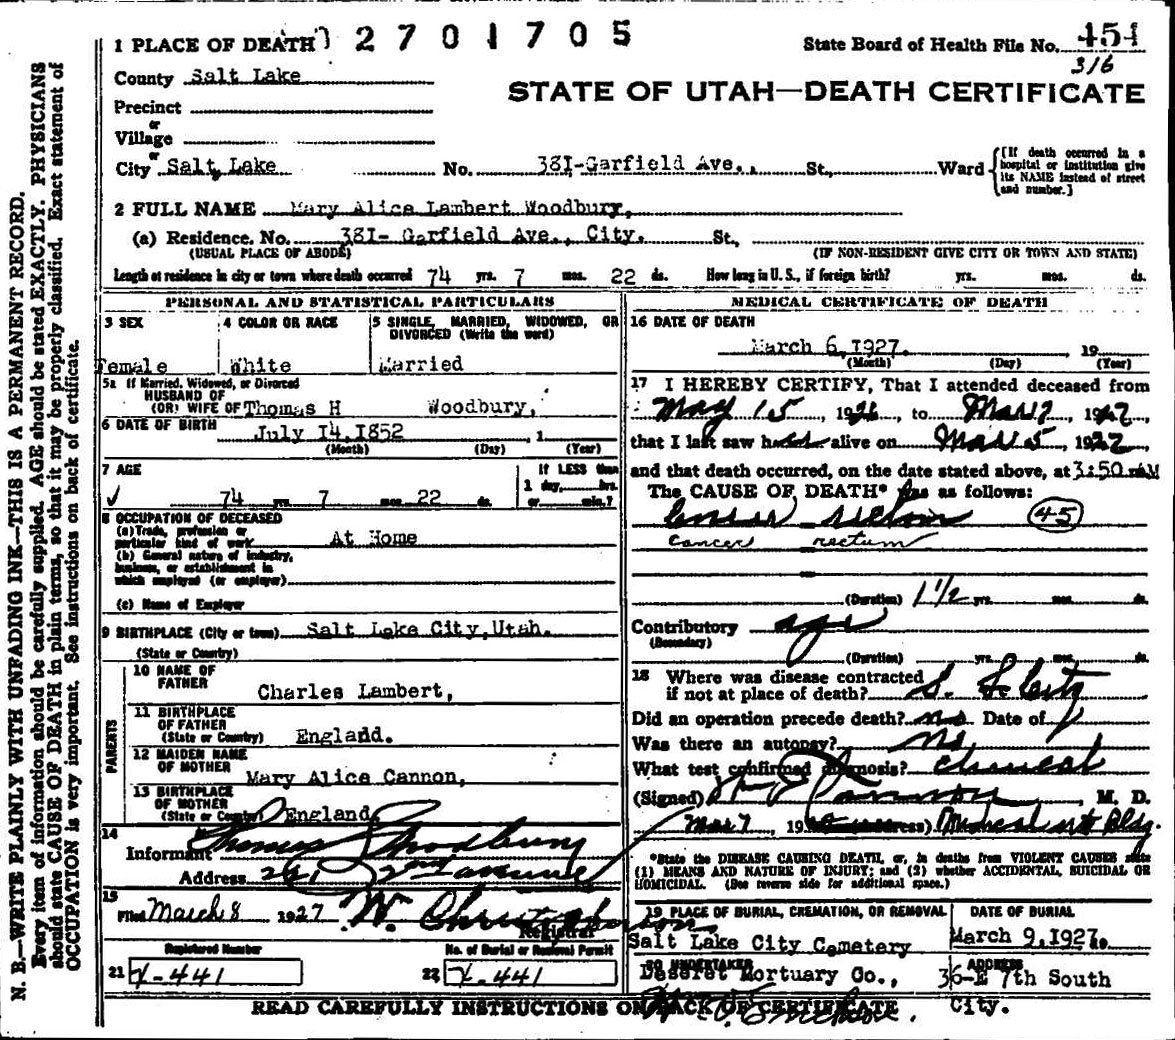 N. B.—WRITE PLAINLY WITH UNFADING INK—THIS IS A PERMANENT RECORD.
Every item of information should be carefully supplied. AGE should be stated EXACTLY. PHYSICIANS
should state CAUSE OF DEATH in plain terms, so that it may be properly classified. Exact statement of
OCCUPATION is very important. See instructions on back of certificate.
1 PLACE OF DEATH 2 7 0 1 7 0 5 State Board of Health File No. 454
316
County Salt Lake
STATE OF UTAH—DEATH CERTIFICATE
Precinct
or
Village
or
City Salt Lake No. 38I-Garfield Ave., St., Ward {[If death occurred in a hospital or institution give its NAME instead of street and number.]
2 FULL NAME Mary Alice Lambert Woodbury,
(a) Residence. No. 38I- Garfield Ave., City. St.,
(USUAL PLACE OF ABODE) (IF NON-RESIDENT GIVE CITY OR TOWN AND STATE)
Length of residence in city or town where death occurred 74 yrs. 7 mos. 22 ds. How long in U. S., if foreign birth? yrs. mos. ds.
PERSONAL AND STATISTICAL PARTICULARS
3 SEX 4 COLOR OR RACE 5 SINGLE, MARRIED, WIDOWED, OR
DIVORCED (Write the word)
Female White Married
5a If Married, Widowed, or Divorced
HUSBAND OF
(OR) WIFE OF Thomas H Woodbury,
6 DATE OF BIRTH July I4,I852 , 1
(Month) (Day) (Year)
7 AGE If LESS than
1 day, hrs.
74 yrs. 7 mos. 22 ds. or min.?
8 OCCUPATION OF DECEASED
(a) Trade, profession or
particular kind of work At Home
(b) General nature of industry,
business, or establishment in
which employed (or employer)
(c) Name of Employer
9 BIRTHPLACE (City or town) Salt Lake City,Utah.
(State or Country)
PARENTS
10 NAME OF
FATHER Charles Lambert,
11 BIRTHPLACE
OF FATHER
(State or Country) England.
12 MAIDEN NAME
OF MOTHER Mary Alice Cannon,
13 BIRTHPLACE
OF MOTHER
(State or Country) England
14
Informant Thomas Woodbury
Address 2nd Avenue
15
Filed March 8 1927 W. Christopherson
Registrar
Registered Number No. of Burial or Removal Permit
21 X-441 22 X-441
MEDICAL CERTIFICATE OF DEATH
16 DATE OF DEATH
March 6,I927. 19
(Month) (Day) (Year)
17 I HEREBY CERTIFY, That I attended deceased from
May 15, 1926, to Mar 7 1927
that I last saw her alive on Mar 5, 1927
and that death occurred, on the date stated above, at 3:50 AM
The CAUSE OF DEATH* was as follows:
Cancer rectum 45
cancer rectum
(Duration) 1 1/2 yrs. mos. ds.
Contributory age
(Secondary)
(Duration) yrs. mos. ds.
18 Where was disease contracted
if not at place of death? S. L. City
Did an operation precede death? no Date of
Was there an autopsy? no
What test confirmed diagnosis? clinical
(Signed) Cannon, M. D.
Mar 7, 19 (Address) Bldg.
*State the DISEASE CAUSING DEATH, or, in deaths from VIOLENT CAUSES state
(1) MEANS AND NATURE OF INJURY; and (2) whether ACCIDENTAL, SUICIDAL OR
HOMICIDAL. (See reverse side for additional space.)
19 PLACE OF BURIAL, CREMATION, OR REMOVAL DATE OF BURIAL
Salt Lake City Cemetery March 9,I927.
20 UNDERTAKER ADDRESS
Deseret Mortuary Co., 36-E 7th South
City.
READ CAREFULLY INSTRUCTIONS ON BACK OF CERTIFICATE